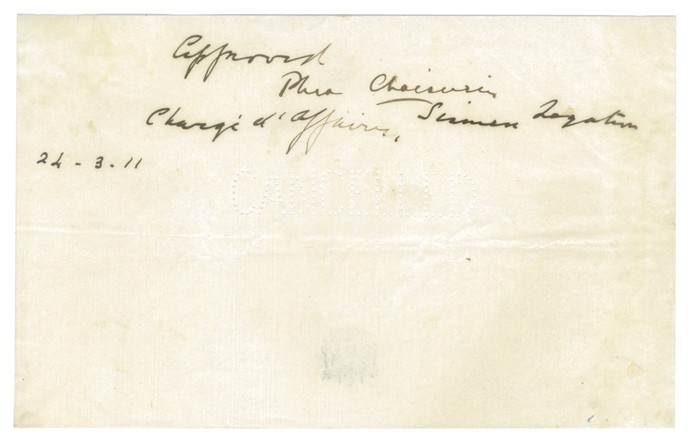 Approved
Phra Chaisurin
Chargé d'Affaires, Siamese Legation
24-3.11
CANCELLED